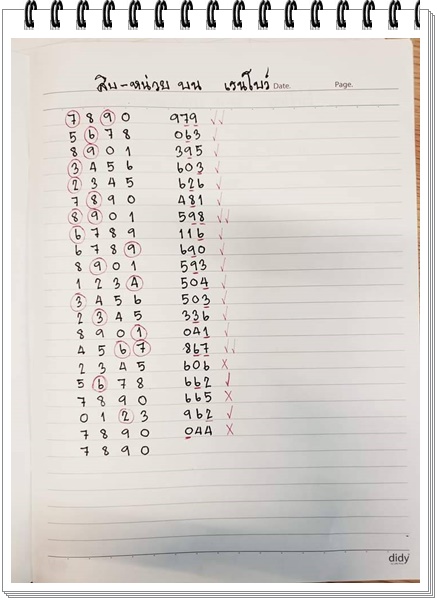 สิบ-หน่วย บน เรนโบว์ Date. Page.
7 8 9 0 979 ✓✓
5 6 7 8 063 ✓
8 9 0 1 395 ✓
3 4 5 6 603 ✓
2 3 4 5 626 ✓
7 8 9 0 481 ✓
8 9 0 1 598 ✓✓
6 7 8 9 116 ✓
6 7 8 9 690 ✓
8 9 0 1 593 ✓
1 2 3 4 504 ✓
3 4 5 6 503 ✓
2 3 4 5 336 ✓
8 9 0 1 041 ✓
4 5 6 7 867 ✓✓
2 3 4 5 606 X
5 6 7 8 662 ✓
7 8 9 0 665 X
0 1 2 3 962 ✓
7 8 9 0 044 X
7 8 9 0
didy